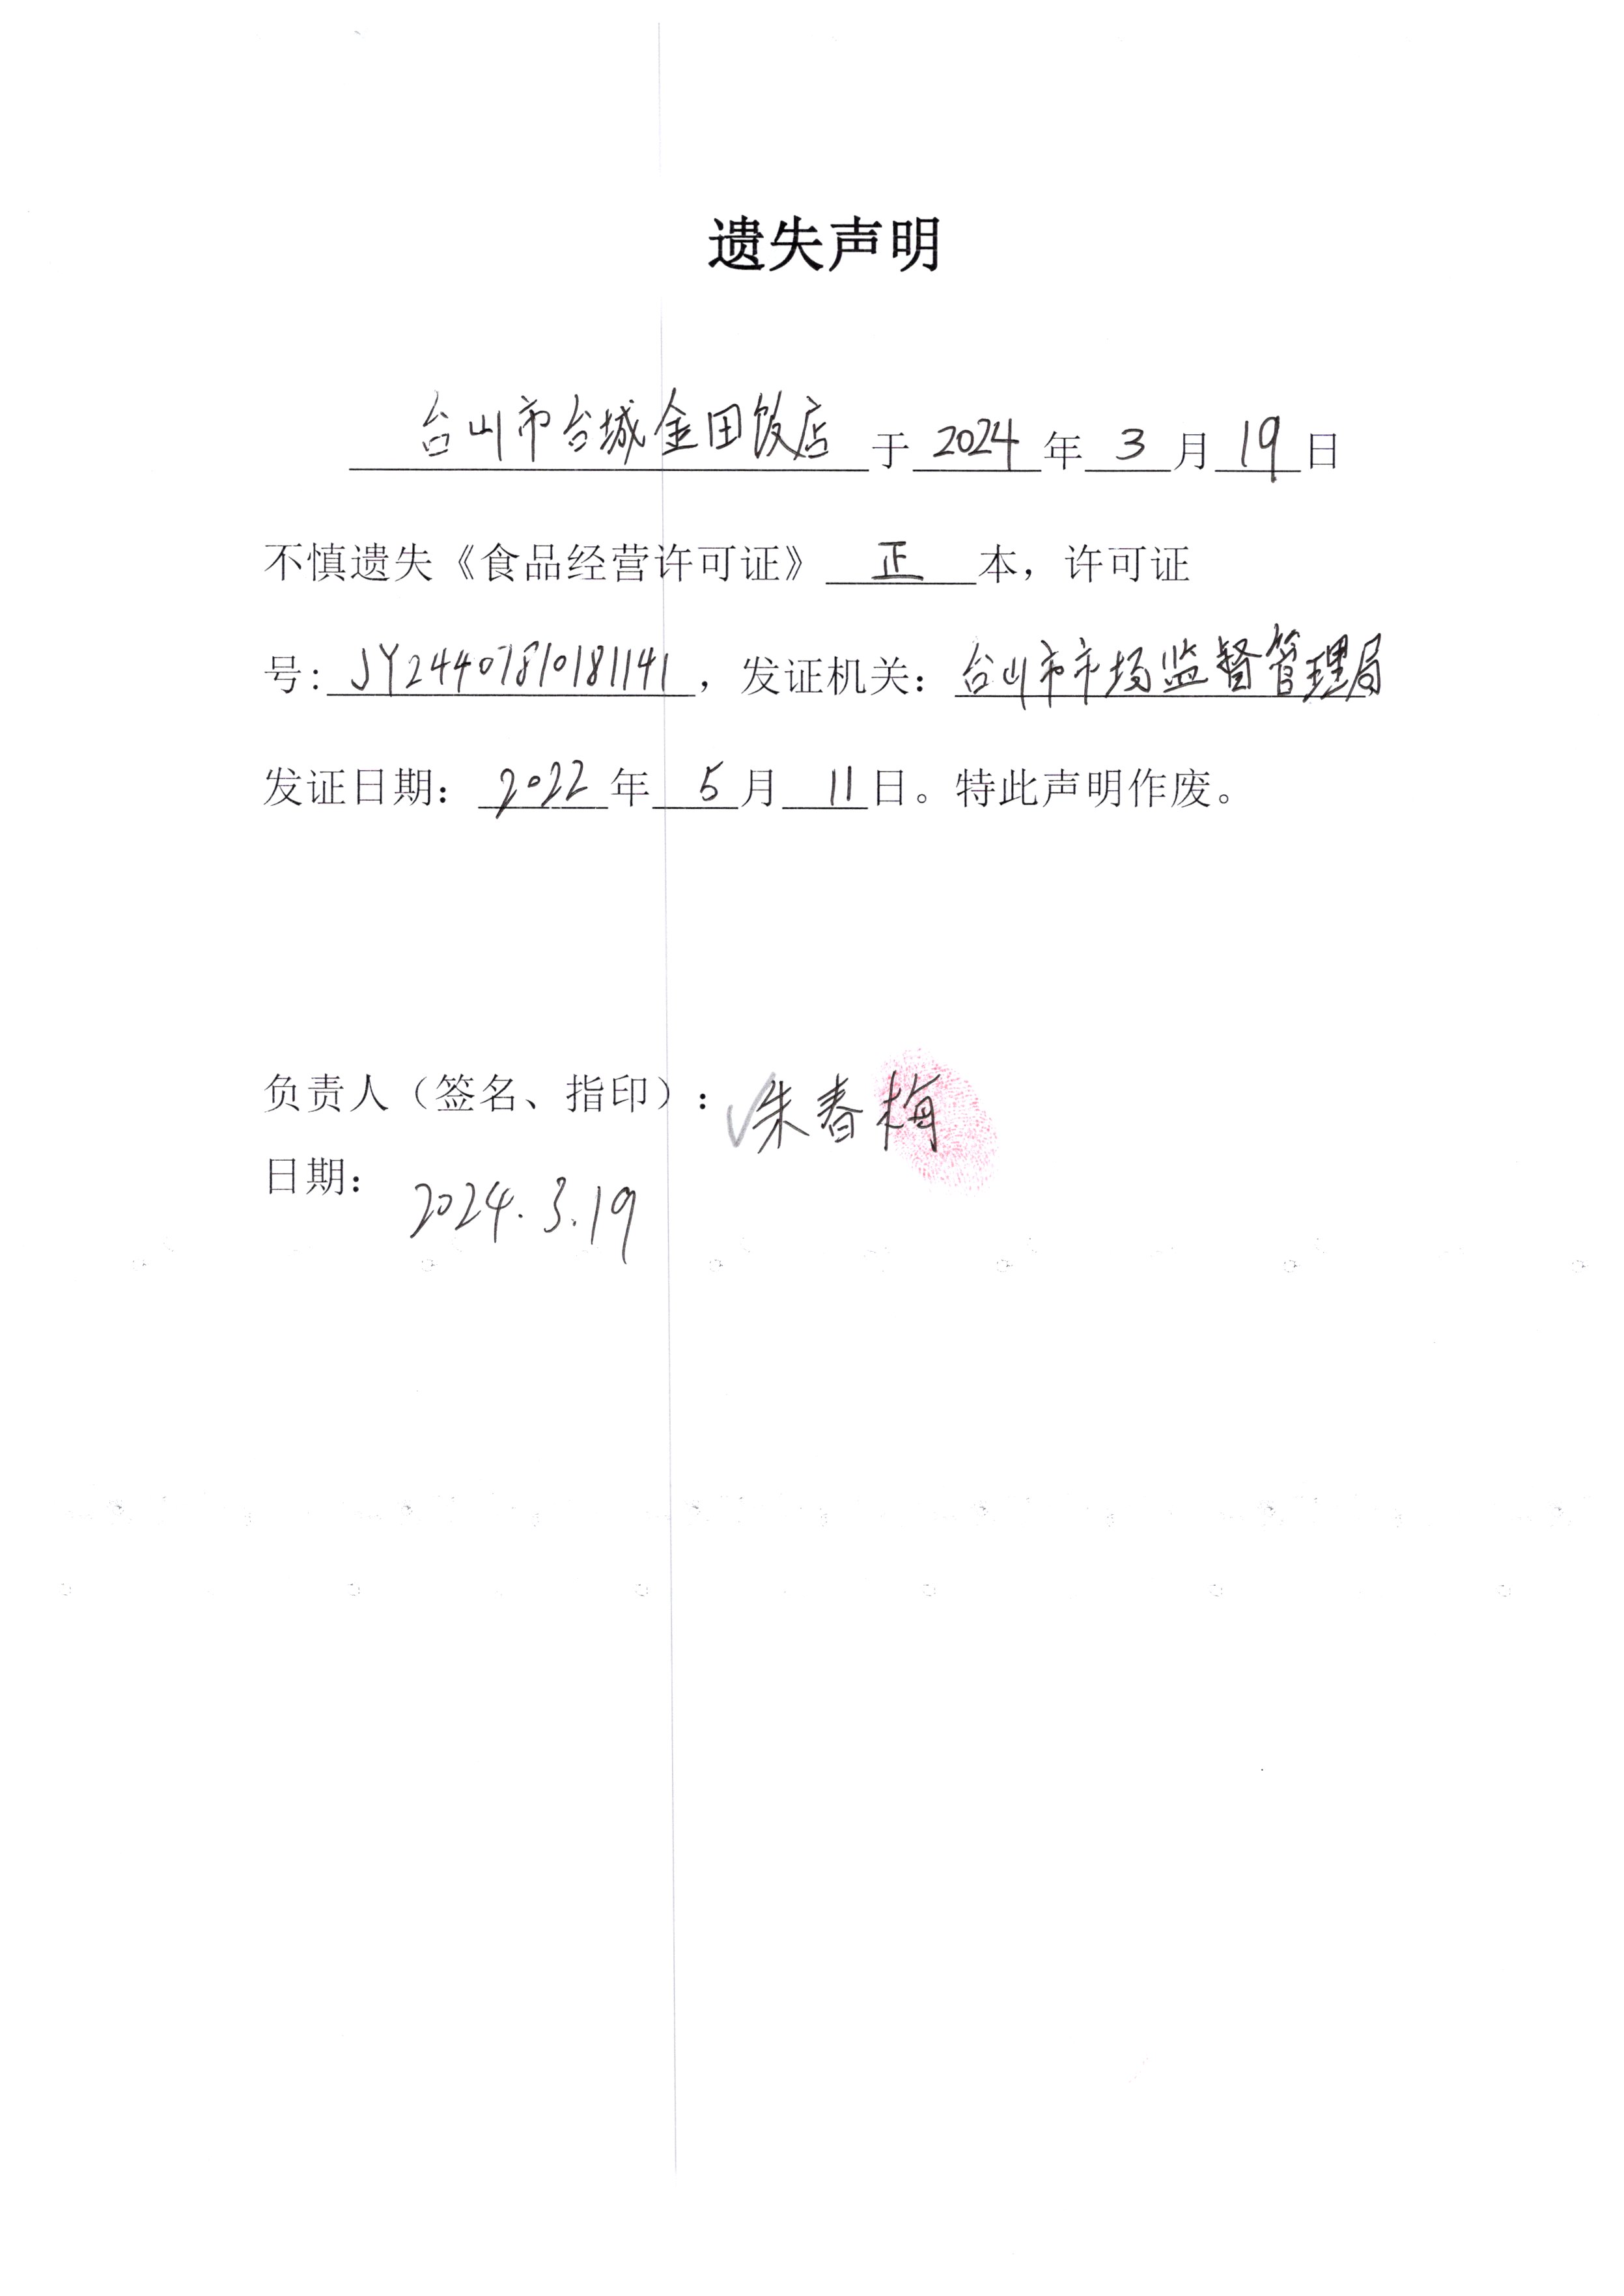 遗失声明
台山市台城金田饭店于2024年3月19日
不慎遗失《食品经营许可证》正本，许可证
号：JY24407810181141，发证机关：台山市市场监督管理局
发证日期：2022年5月11日。特此声明作废。
负责人（签名、指印）：朱春梅
日期：2024.3.19